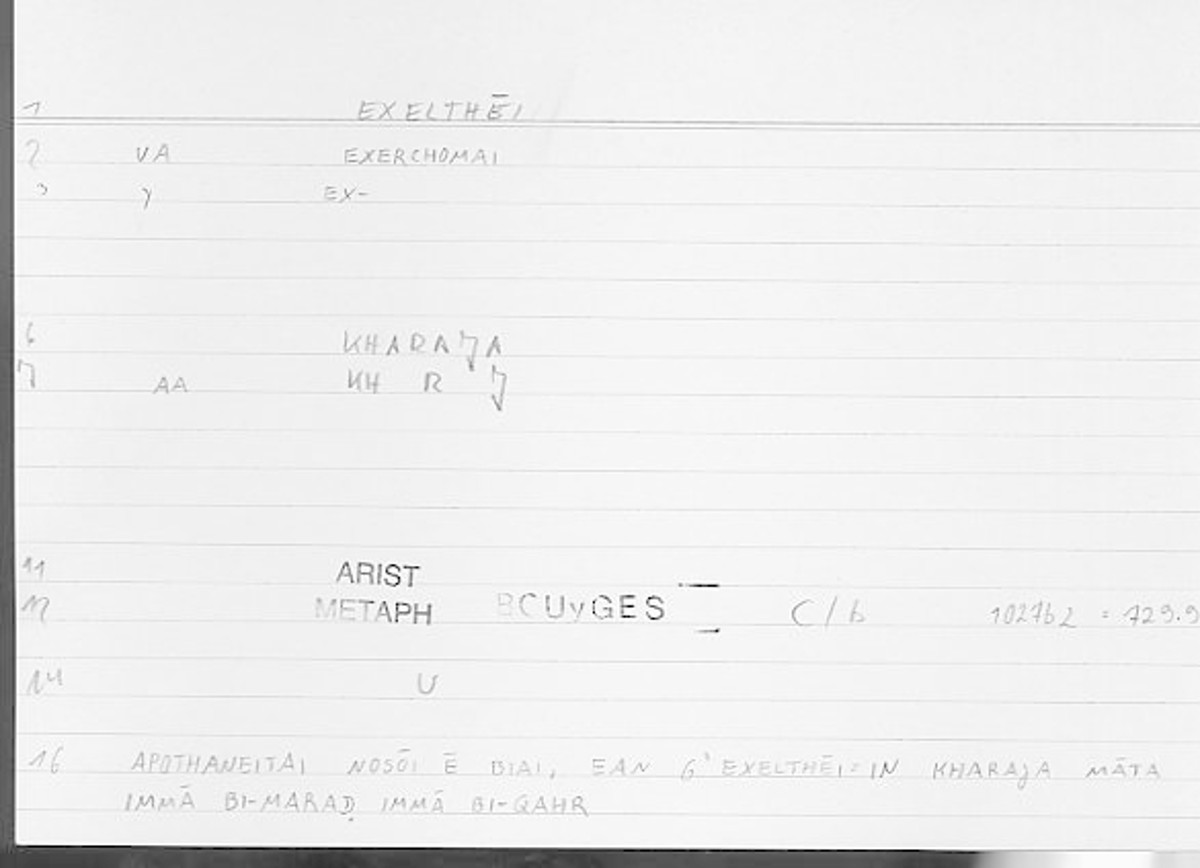 1 EXELTHĒI
2 VA EXERCHOMAI
3 γ EX-
6 KHARAJA
7 AA KH R J
11 ARIST
12 METAPH BOUyGES C/b 1027b2 = 729.9
14 U
16 APOTHANEITAI NOSŌI Ē BIAI, EAN G' EXELTHĒI = IN KHARAJA MĀTA
IMMĀ BI-MARAḌ IMMĀ BI-QAHR